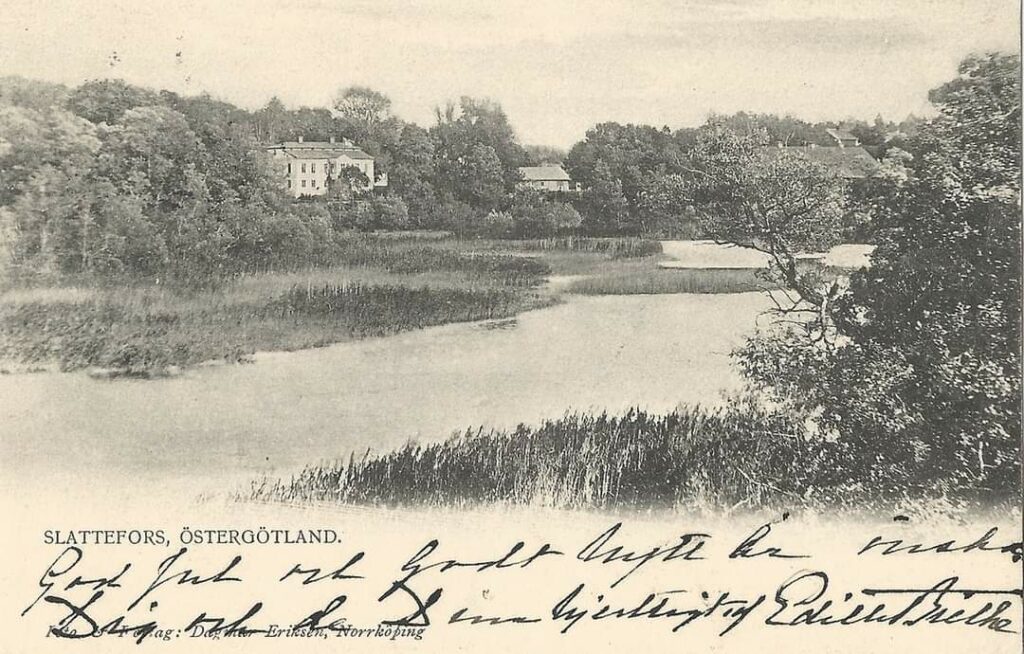 SLATTEFORS, ÖSTERGÖTLAND.
God Jul och Godt Nytt år önskas
Dig och de Dina hjertligt af Edith
Foto & Förlag: Dagmar Eriksén, Norrköping